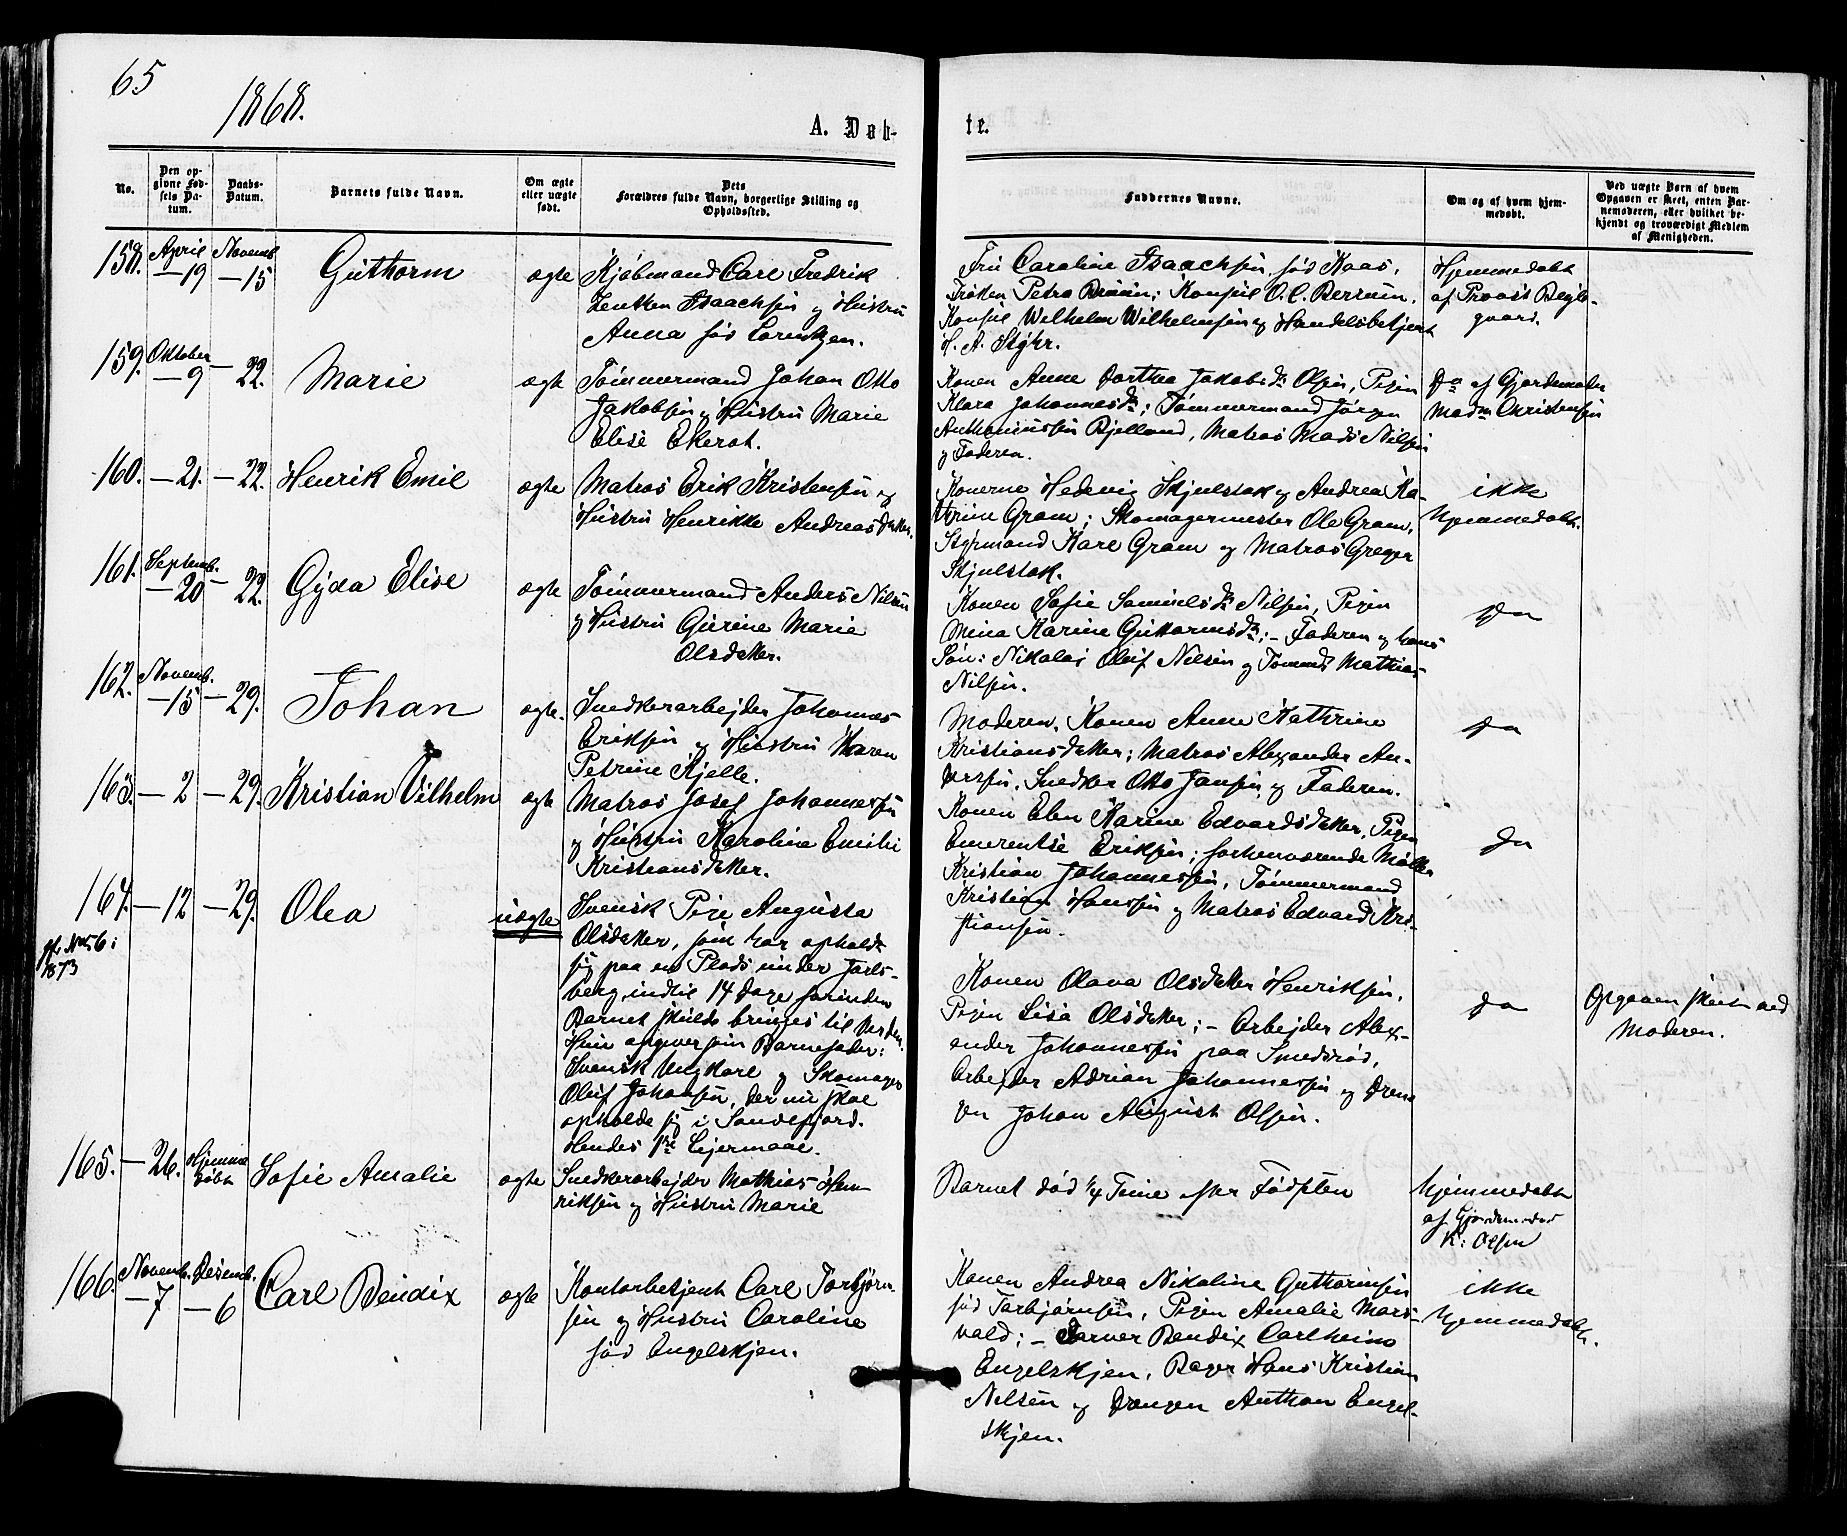 65
1868.
A. Døb-
te.
No.
Den op-
givne Fød-
sels Da-
tum.
Daabs-
Datum.
Barnets fulde Navn.
Om ægte
eller uægte
født.
Dets
Forældres fulde Navn, borgerlige Stilling og
Opholdssted.
Faddernes Navne.
Om og af hvem hjem-
medøbt.
Ved uægte Børn af hvem
Opgaven er skeet, enten Bar-
nemoderen, eller hvilket be-
kjendt og troværdigt Medlem
af Menigheden.
158. April —19 Novemb. —15 Guthorm ægte
Kjøbmand Carl Fredrik
Isaachsen og Hustru
Anna fød Lorentzen.
Fru Caroline Isaachsen, fød Kaas,
Frøken Petra Bruun; Konsul O. C. Bersum,
Konsul Wilhelm Wilhelmsen og Handelsbetjent
H. A. Bøhr.
Hjemmedøbt
af Provst
159. Oktober —9 —22. Marie ægte
Tømmermand Johan Otto
Jakobsen og Hustru Marie
Elise Ekerot.
Konen Anne Dorthea Jakobsdr Olsen, Pigen
Klara Johannesdr; Tømmermand Jørgen
Anthoniussen Bjelland, Matros Mads Nilsen
og Faderen.
Do af Gjordemoder
Madm Christensen
160. —21. —22. Henrik Emil ægte
Matros Erik Kristensen og
Hustru Henrikke Andreasdatter.
Konerne Hedevig Skjulstok og Andrea Ka-
trine Gram; Skomagermester Ole Gram,
Styrmand Karl Gram og Matros Greger
Skjulstok.
ikke
hjemmedøbt.
161. Septemb. —20 —22. Gyda Elise ægte
Tømmermand Anders Nilsen
og Hustru Gurine Marie
Olsdatter.
Konen Sofie Samuelsdr Nilsen, Pigen
Mina Karine Guttormsdr; — Faderen og hans
Søn: Nikolai Oluf Nelsen og Tømmd Mathias
Nilsen.
Do
162. Novemb. —15 —29. Johan ægte.
Snedkerarbejder Johannes
Eriksen og Hustru Maren
Petrine Kjelle.
Moderen, Konen Anne Kathrine
Kristiansdatter; Matros Alexander An-
dersen, Snedker Otto Jansen og Faderen.
Do
163. —2 —29. Kristian Vilhelm ægte
Matros Josef Johannessen
og Hustru Karoline Emilie
Kristiansdatter.
Konen Elen Karine Edvardsdatter, Pigen
Emerentse Eriksen; forhenværende Møller
Kristian Johannessen, Tømmermand
Kristian Hanssen og Matros Edvard Kri-
stiansen.
Do
164. —12 —29. Olea uægte
1873
Svensk Pige Augusta
Olsdatter, som har opholdt
sig paa en Plads under Jarls-
berg indtil 14 Dage førinden
Barnet skulde bringes til Verden.
Hun opgiver som Barnefader:
Svensk Ungkarl og Skomager
Oluf Johansen, der nu skal
opholde sig i Sandefjord.
Hendes 1ste Lejermaal.
Konen Olava Olsdatter Henriksen,
Pigen Lisa Olsdatter; — Arbejder Alex-
ander Johannessen paa Smedsrød,
Arbejder Adrian Johannessen og Dren-
gen Johan August Olsen.
Do
Opgaven skeet ved
Moderen.
165. —26. Hjemme
døbt Sofie Amalie ægte
Snedkerarbejder Mathias Hen-
riksen og Hustru Marie
Barnet død 1/4 Time efter Fødselen
hjemmedøbt
af Gjordemoder
K: Olsen
166. Novemb. —7 Desemb. —6 Carl Bendix ægte
Kontorbetjent Carl Torbjørn-
sen og Hustru Caroline
fød Engelskjen.
Konen Andrea Nikoline Guttormsen
fød Torbjørnsen, Pigen Amalie Mars-
vald; — Garver Bendix Carlheim
Engelskjen, Bager Hans Kristian
Nelsen og Drengen Anthon Engel-
skjen.
ikke
hjemmedøbt.